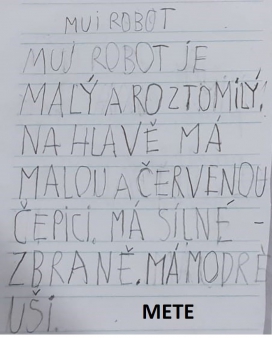 MUJ ROBOT
MUJ ROBOT JE
MALÝ A ROZTOMILÝ.
NA HLAVĚ MÁ
MALOU A ČERVENOU
ČEPICI. MÁ SILNÉ -
ZBRANĚ. MÁ MODRÉ
UŠI. METE